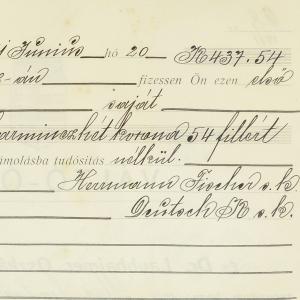 Junius hó 20 K437.54
-án fizessen Ön ezen első
saját
harminczhét korona 54 fillért
ámolásba tudósitás nélkül.
Herrmann Fischer s.k.
Deutsch K s.k.